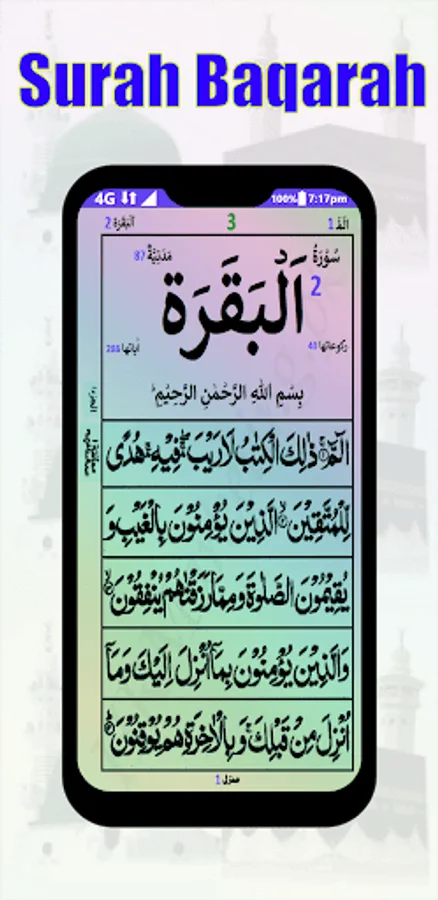 Surah Baqarah
4G 100% 7:17pm
البقرة 2 3 الٓمّٓ 1
سُوْرَةُ 2 مَدَنِيَّةٌ 87
اَلْبَقَرَة
رکوعاتها 40 اٰیاتها 286
بِسْمِ اللّٰهِ الرَّحْمٰنِ الرَّحِيْمِ
الٓمّٓ ۚ ذٰلِكَ الْكِتٰبُ لَا رَيْبَ ۛ فِيْهِ ۛ هُدًى
لِّلْمُتَّقِيْنَ ۙ الَّذِيْنَ يُؤْمِنُوْنَ بِالْغَيْبِ وَ
يُقِيْمُوْنَ الصَّلٰوةَ وَمِمَّا رَزَقْنٰهُمْ يُنْفِقُوْنَ ۙ
وَالَّذِيْنَ يُؤْمِنُوْنَ بِمَاۤ اُنْزِلَ اِلَيْكَ وَمَاۤ
اُنْزِلَ مِنْ قَبْلِكَ ۚ وَبِالْاٰخِرَةِ هُمْ يُوْقِنُوْنَ ؕ
منزل 1